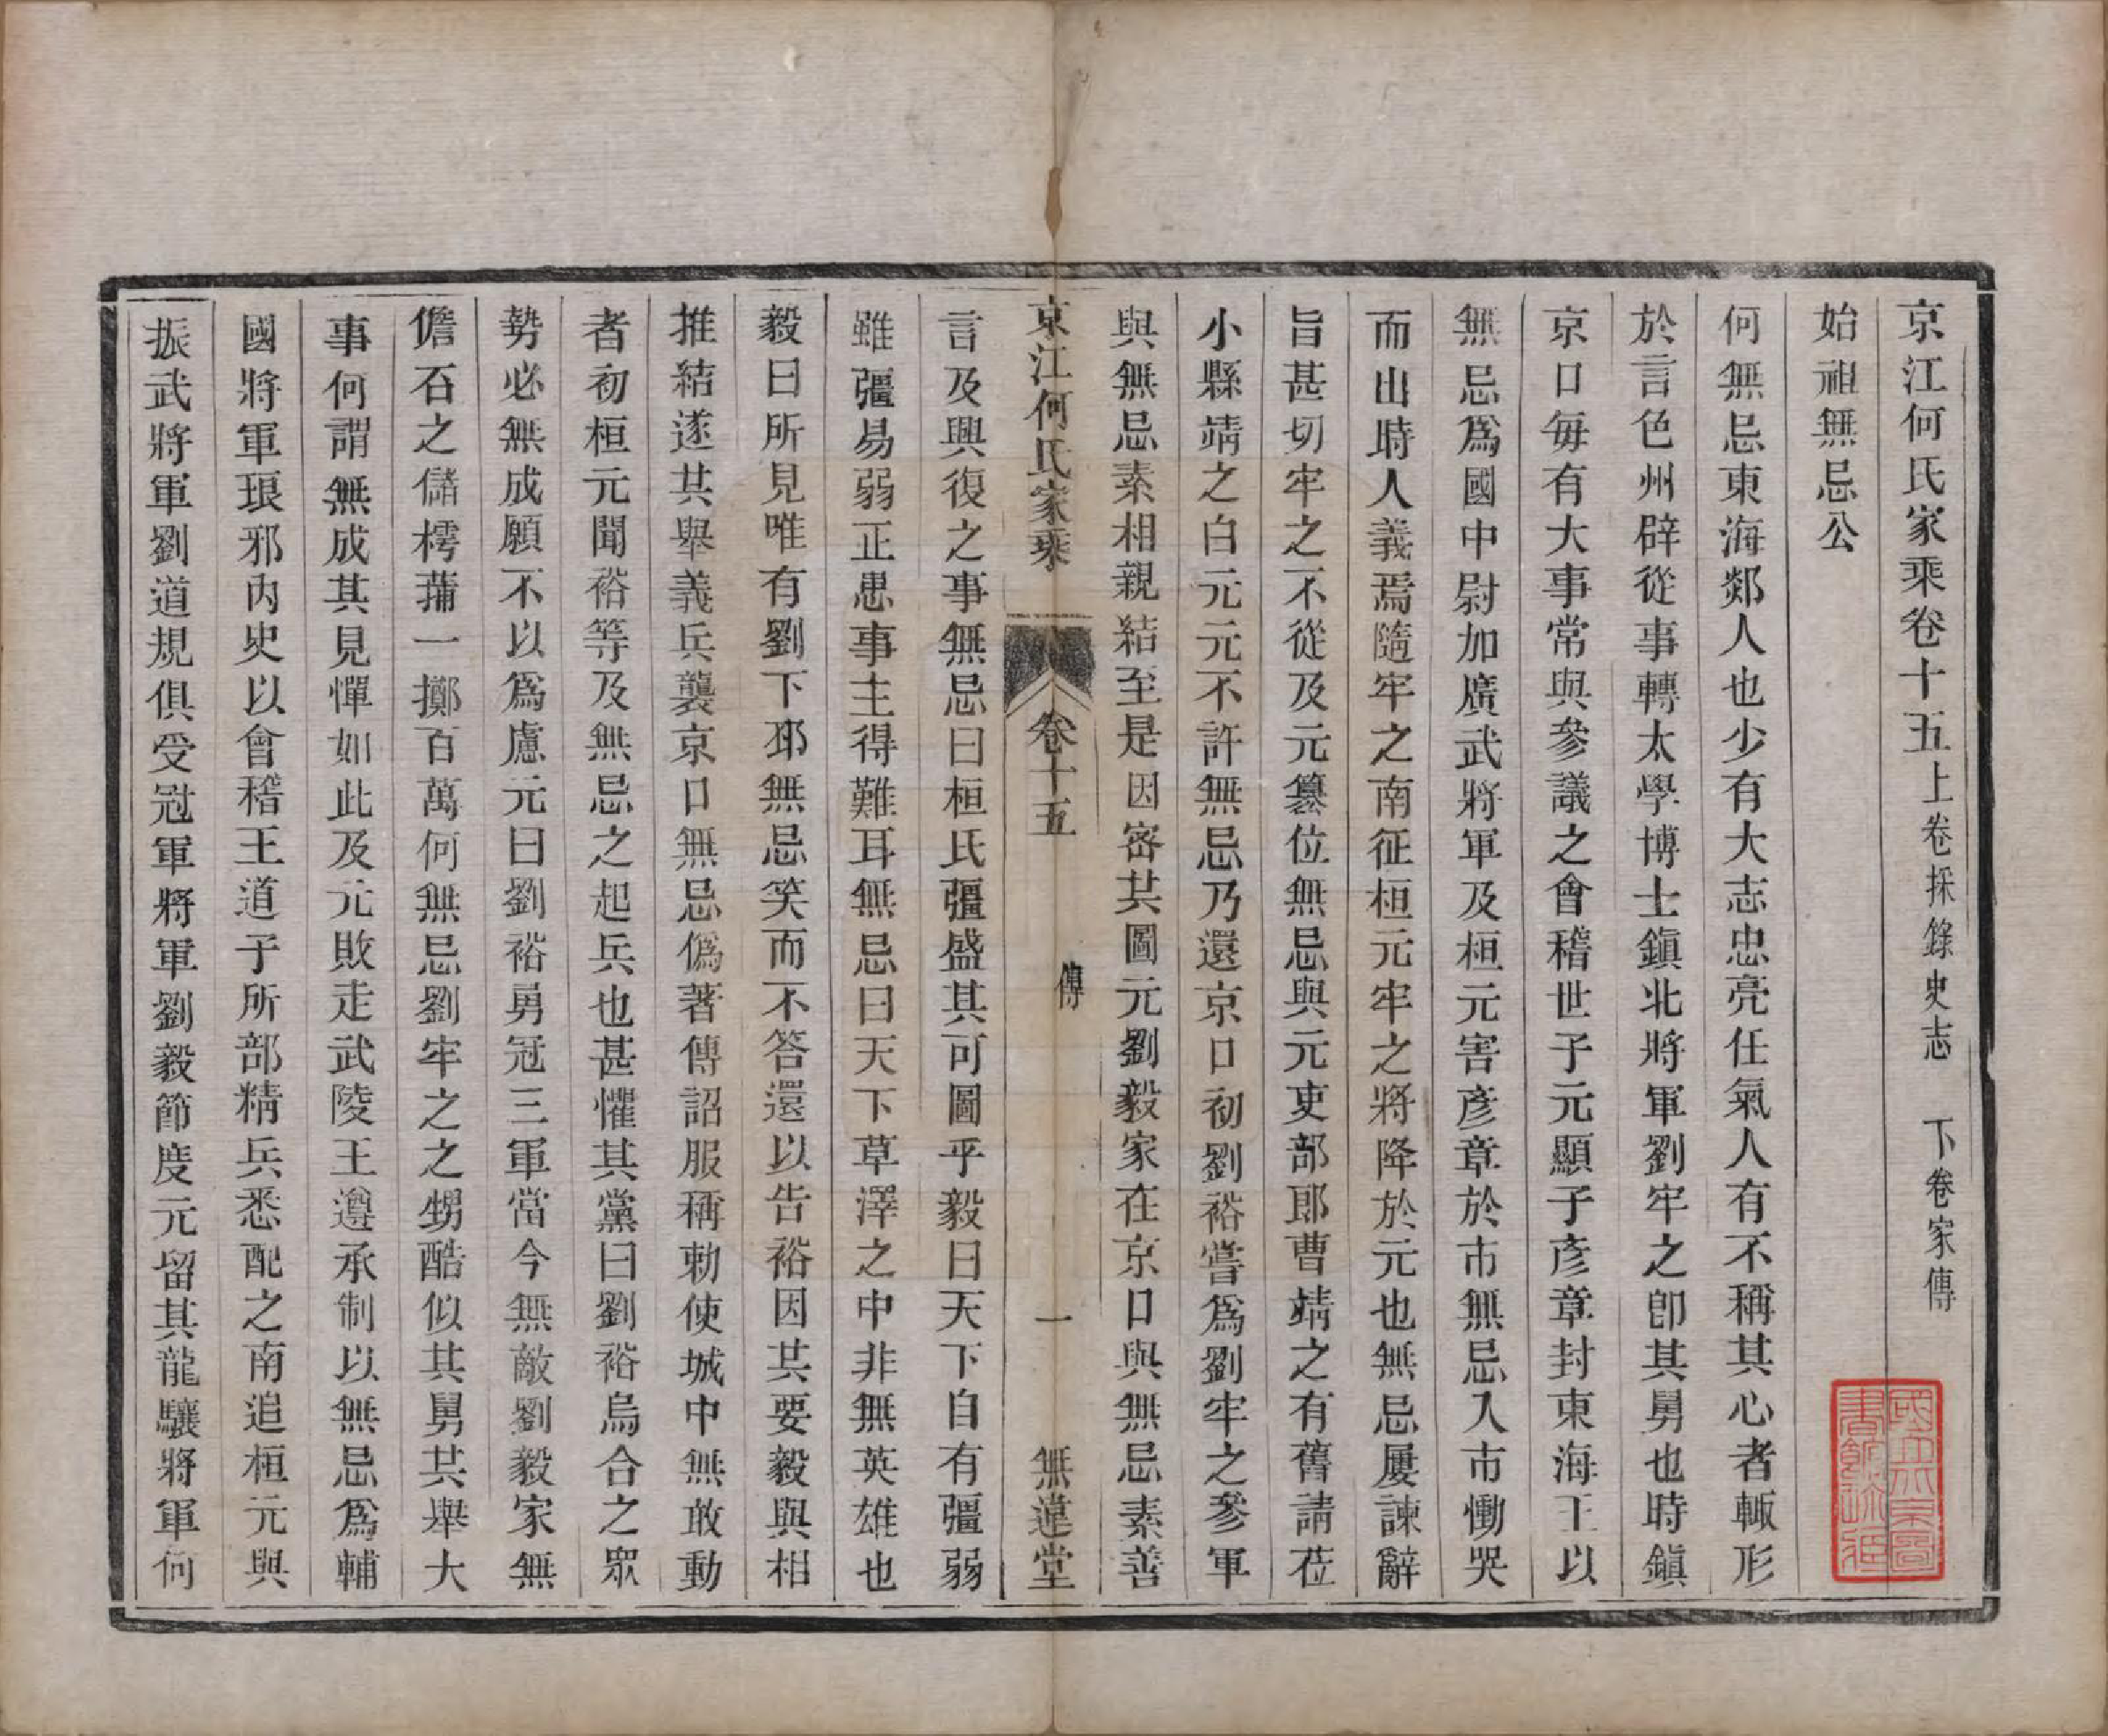 京江何氏家乘卷十五上卷採錄史志　下卷家傳
始祖無忌公
何無忌東海郯人也少有大志忠亮任氣人有不稱其心者輒形
於言色州辟從事轉太學博士鎮北將軍劉牢之卽其舅也時鎮
京口每有大事常與參議之會稽世子元顯子彥章封東海王以
無忌爲國中尉加廣武將軍及桓元害彥章於市無忌入市慟哭
而出時人義焉隨牢之南征桓元牢之將降於元也無忌屢諫辭
旨甚切牢之不從及元篡位無忌與元吏部郎曹靖之有舊請莅
小縣靖之白元元不許無忌乃還京口初劉裕嘗爲劉牢之參軍
與無忌素相親結至是因密共圖元劉毅家在京口與無忌素善
京江何氏家乘　卷十五　傳　一　無違堂
言及興復之事無忌曰桓氏彊盛其可圖乎毅曰天下自有彊弱
雖彊易弱正患事主得難耳無忌曰天下草澤之中非無英雄也
毅曰所見唯有劉下邳無忌笑而不答還以告裕因共要毅與相
推結遂共舉義兵襲京口無忌僞著傳詔服稱勅使城中無敢動
者初桓元聞裕等及無忌之起兵也甚懼其黨曰劉裕烏合之眾
勢必無成願不以爲慮元曰劉裕勇冠三軍當今無敵劉毅家無
儋石之儲樗蒱一擲百萬何無忌劉牢之之甥酷似其舅共舉大
事何謂無成其見憚如此及元敗走武陵王遵承制以無忌爲輔
國將軍琅邪內史以會稽王道子所部精兵悉配之南追桓元與
振武將軍劉道規俱受冠軍將軍劉毅節度元留其龍驤將軍何